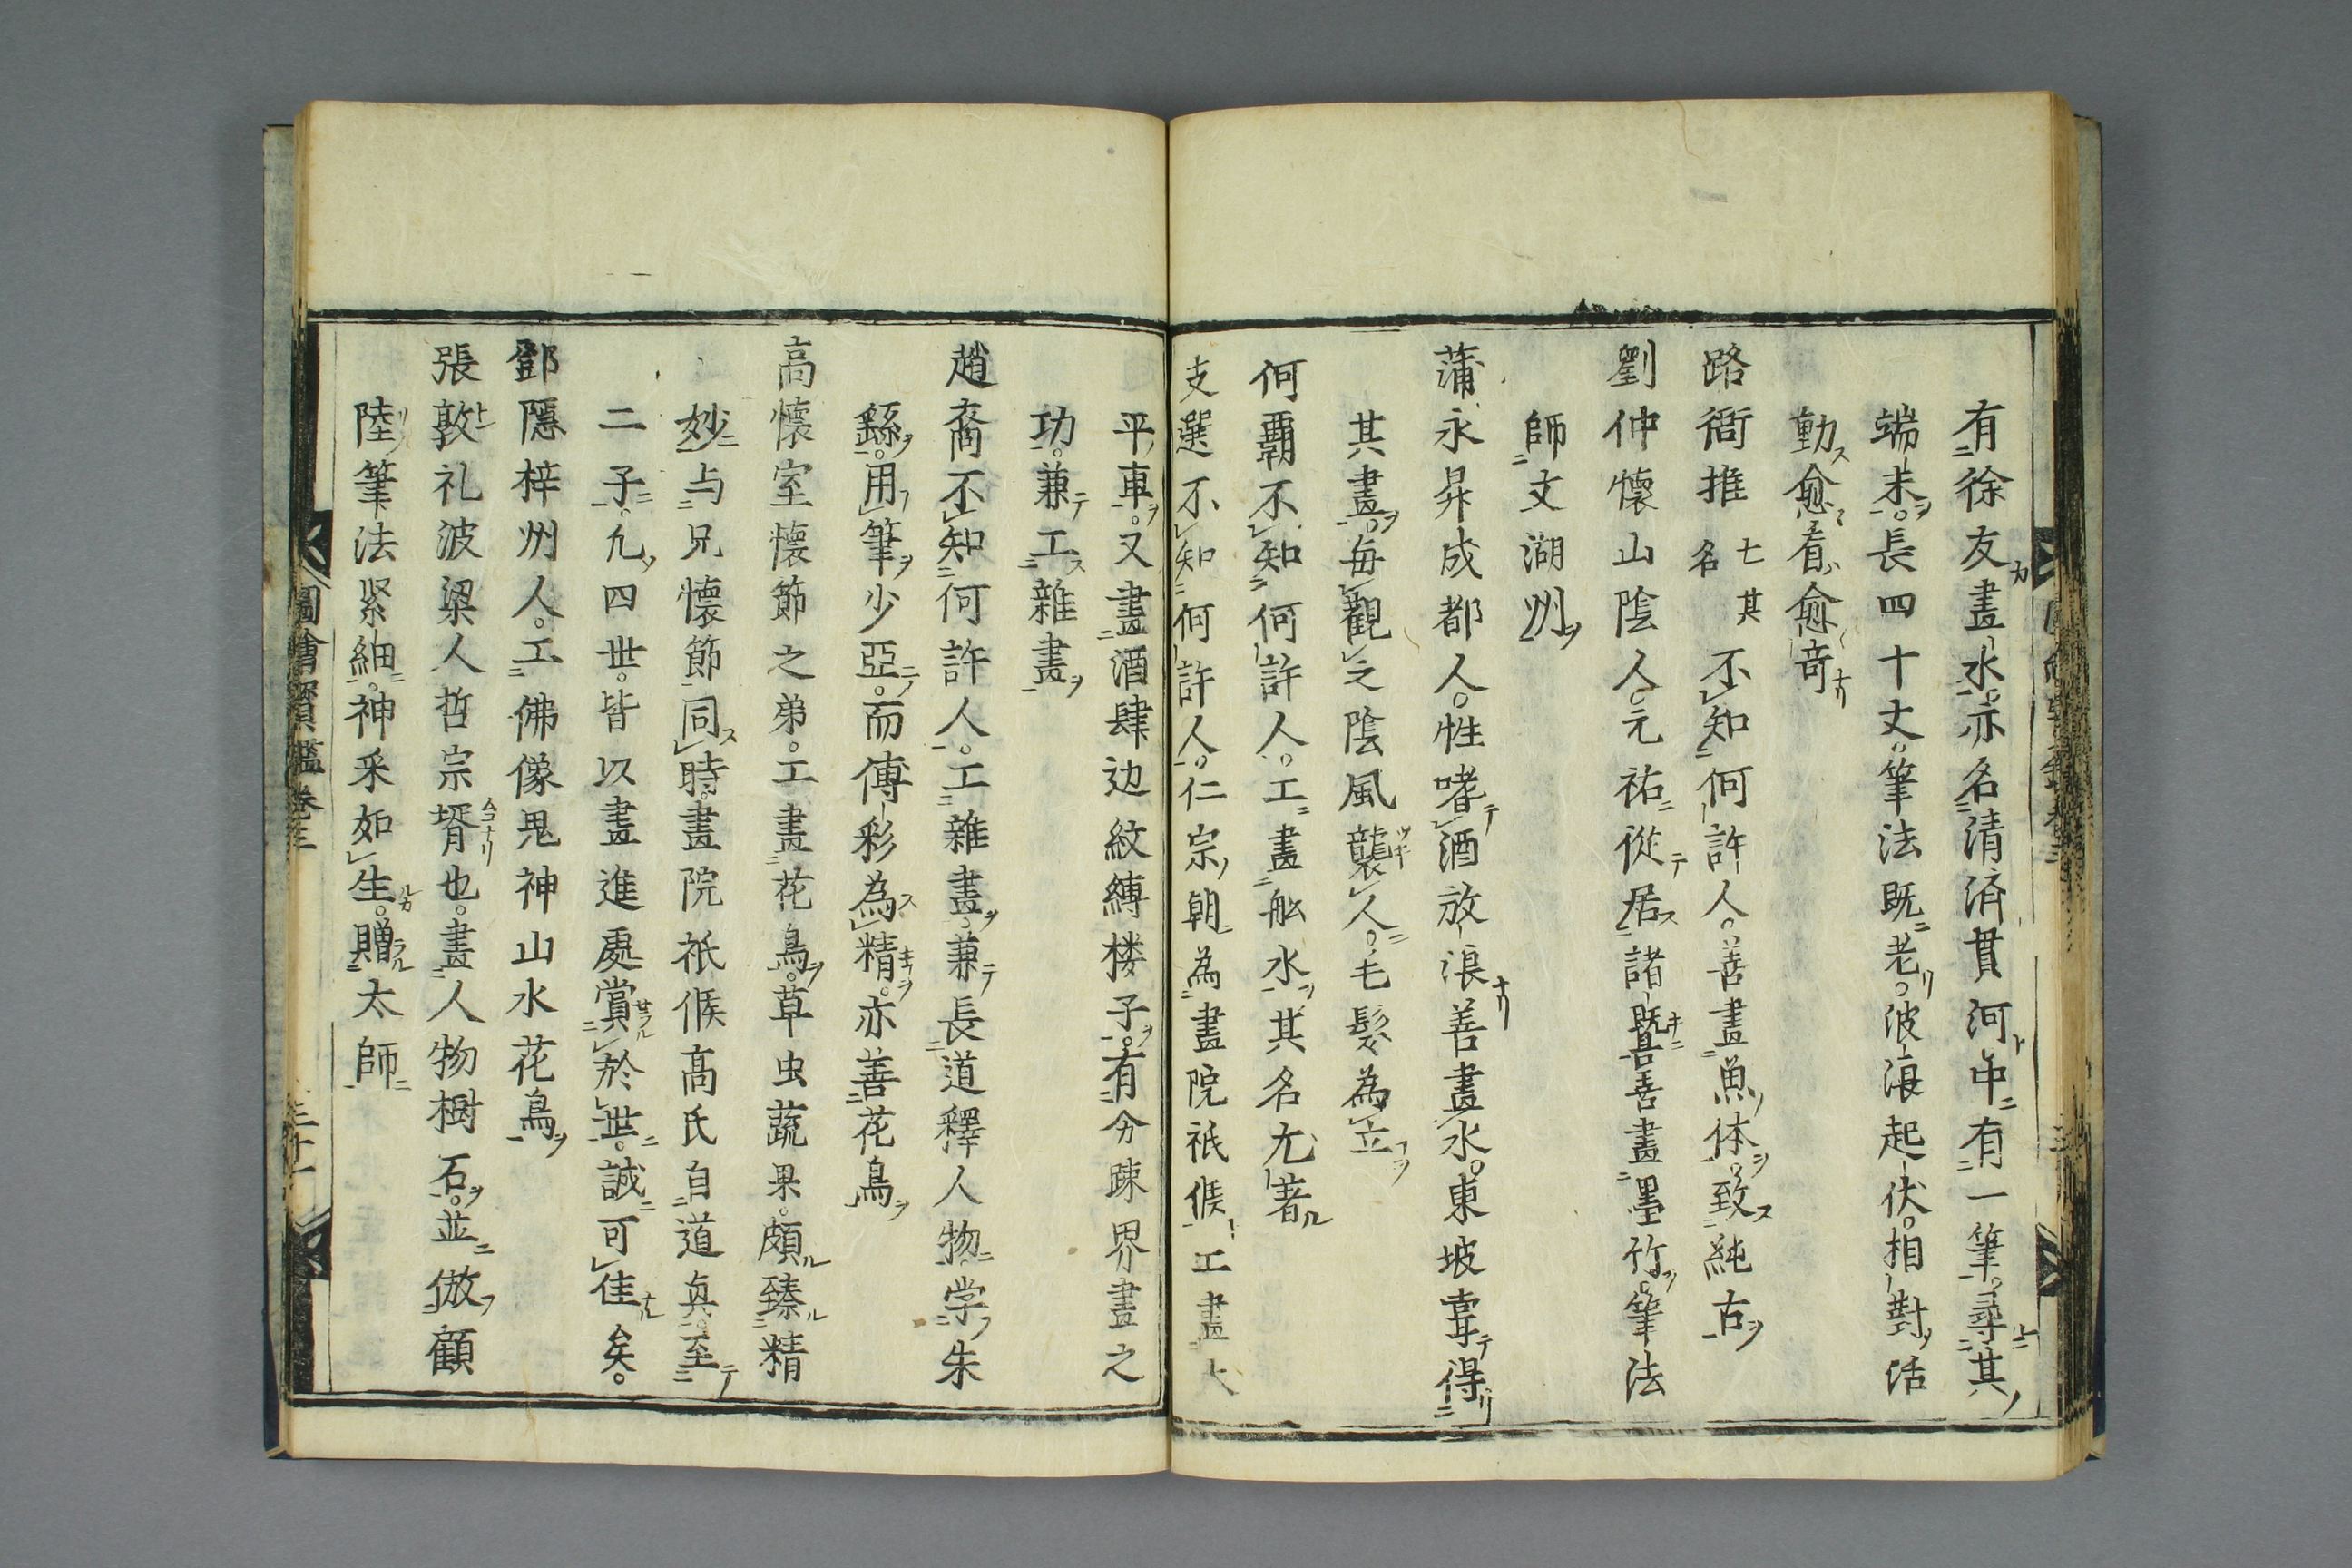 有徐友畫水。亦名清済貫河中有一筆。尋其
端末。長四十丈。筆法既老。波浪起伏。相對活
動愈看愈奇
路衙推七其名不知何許人。善畫魚体。致純古
劉仲懷山陰人。元祐從居諸曁善畫墨竹。筆法
師文湖州
蒲永昇成都人。性嗜酒放浪善畫水。東坡嘗得
其畫。每觀之陰風襲人。毛髮為立
何霸不知何許人。工畫舩水其名尤著
支選不知何許人。仁宗朝為畫院祇候工畫大
平車。又畫酒肆边紋縛楼子。有分踈界畫之
功。兼工雜畫
趙裔不知何許人。工雜畫。兼長道釋人物。学朱
繇。用筆少亞。而傅彩為精。亦善花鳥
高懷室懷節之弟。工畫花鳥。草虫蔬果。頗臻精
妙与兄懷節同時。畫院祇候高氏自道真。至
二子。凢四世。皆以畫進處賞於世。誠可佳矣。
鄧隱梓州人。工佛像鬼神山水花鳥
張敦礼波梁人哲宗壻也。畫人物樹石。並倣顧
陸筆法紧細。神采如生。贈太師
圖繪寳鑑卷三
三十一